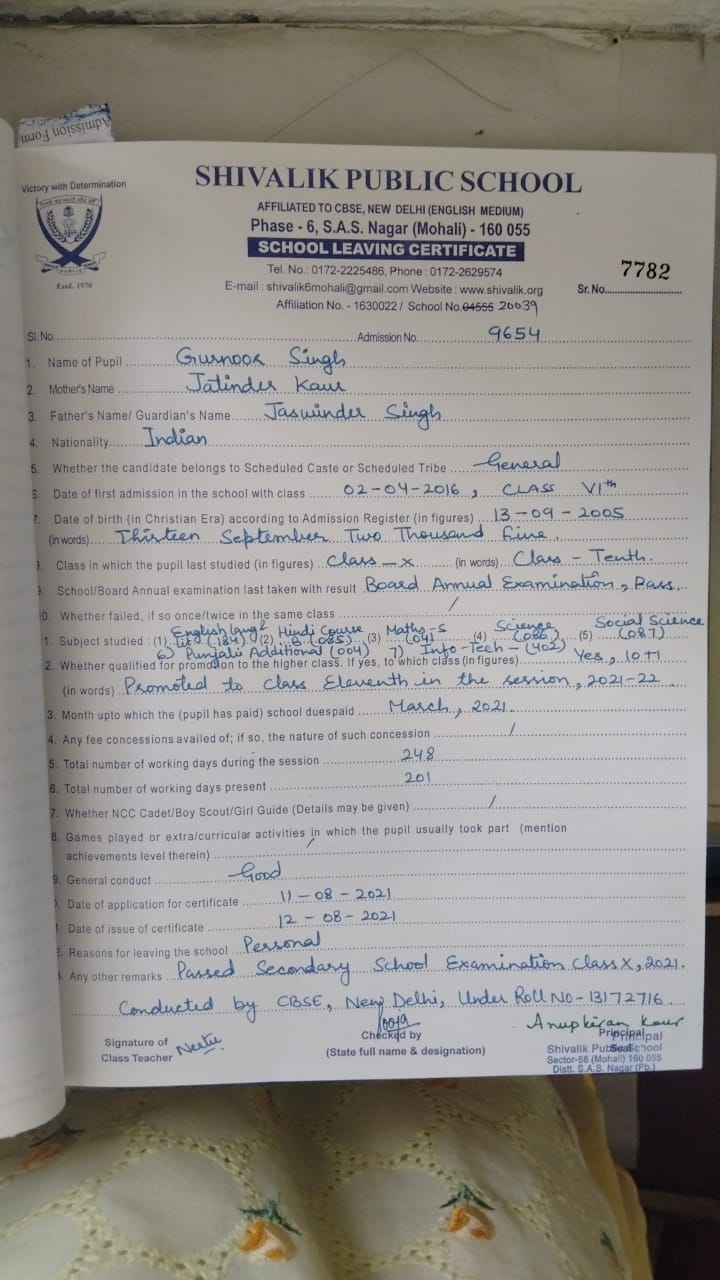 Admission Form
Victory with Determination
SHIVALIK PUBLIC SCHOOL
AFFILIATED TO CBSE, NEW DELHI (ENGLISH MEDIUM)
Phase - 6, S.A.S. Nagar (Mohali) - 160 055
SCHOOL LEAVING CERTIFICATE
Tel. No.: 0172-2225486, Phone : 0172-2629574
E-mail : shivalik6mohali@gmail.com Website : www.shivalik.org
Affiliation No. - 1630022 / School No. 04555 20039
PUBLIC
Estd. 1970
7782
Sr. No.
Sl. No. Admission No. 9654
1. Name of Pupil Gurnoor Singh
2. Mother's Name Jatinder Kaur
3. Father's Name/ Guardian's Name Jaswinder Singh
4. Nationality Indian
5. Whether the candidate belongs to Scheduled Caste or Scheduled Tribe General
6. Date of first admission in the school with class 02-04-2016, CLASS VIth
7. Date of birth (in Christian Era) according to Admission Register (in figures) 13-09-2005
(in words) Thirteen September Two Thousand Five.
Class in which the pupil last studied (in figures) Class-X (in words) Class - Tenth.
School/Board Annual examination last taken with result Board Annual Examination, Pass.
0. Whether failed, if so once/twice in the same class /
1. Subject studied : (1) English Lang & Lit (184) (2) Hindi Course B (085) (3) Maths-S (041) (4) Science (086) (5) Social Science (087)
6) Punjabi Additional (004) 7) Info-Tech - (402)
2. Whether qualified for promotion to the higher class. If yes, to which class (in figures) Yes, 10+1
(in words) Promoted to Class Eleventh in the session, 2021-22
3. Month upto which the (pupil has paid) school duespaid March, 2021.
4. Any fee concessions availed of; if so, the nature of such concession /
5. Total number of working days during the session 248
6. Total number of working days present 201
7. Whether NCC Cadet/Boy Scout/Girl Guide (Details may be given) /
8. Games played or extra/curricular activities in which the pupil usually took part (mention
achievements level therein) /
9. General conduct Good
Date of application for certificate 11-08-2021
Date of issue of certificate 12-08-2021
Reasons for leaving the school Personal
Any other remarks Passed Secondary School Examination Class X, 2021.
Conducted by CBSE, New Delhi, Under Roll No - 13172716
Signature of
Class Teacher Neetu
Pooja
Checked by
(State full name & designation)
Anupkiran Kaur
Principal
Principal
Shivalik Public School
Seal
Sector-56 (Mohali) 160 055
Distt. S.A.S. Nagar (Pb.)